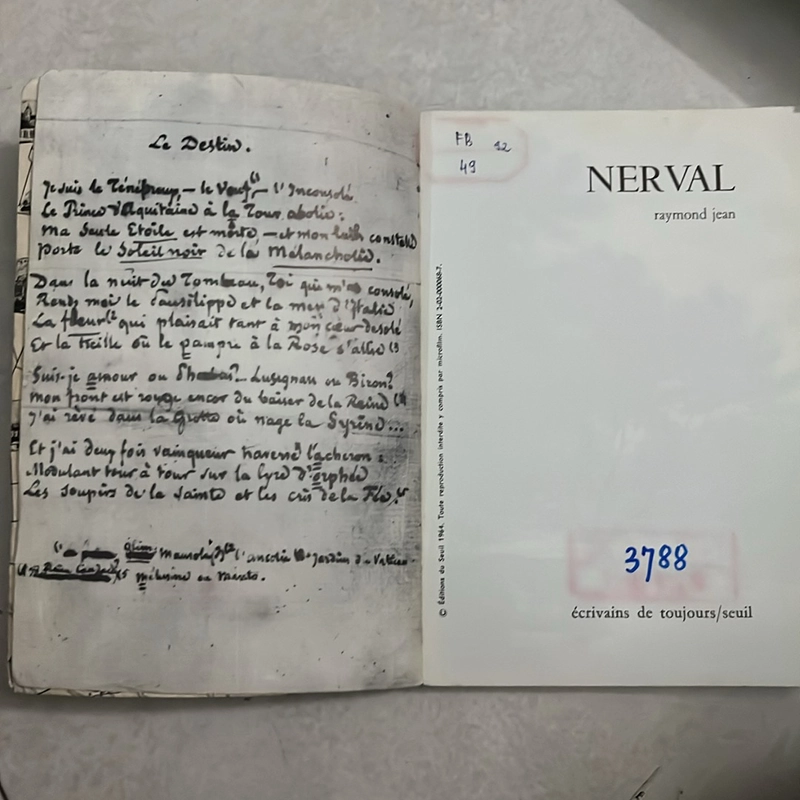 Le Destin.
Je suis le Ténébreux – le Veuf – l'Inconsolé
Le Prince d'Aquitaine à la Tour abolie:
Ma Seule Etoile est morte – et mon luth constellé
porte le Soleil noir de la Mélancholie.
Dans la nuit du Tombeau, Toi qui m'as consolé,
Rends moi le Pausilippe et la mer d'Italie
La fleur qui plaisait tant à mon cœur desolé
Et la Treille où le pampre à la Rose s'allie
Suis-je amour ou Lusignan ou Biron?
mon front est rouge encor du baiser de la Reine
J'ai rêvé dans la Grotte où nage la Syrène...
Et j'ai deux fois vainqueur traversé l'acheron:
Modulant tour à tour sur la lyre d'orphée
Les soupirs de la Sainte et les cris de la Fée.
olim: Mausolée l'ancolie Jardins du Vatican
mélusine ou
FB 92
49
NERVAL
raymond jean
© Éditions du Seuil 1964. Toute reproduction interdite y compris par microfilm. ISBN 2-02-000068-7.
3788
écrivains de toujours/seuil